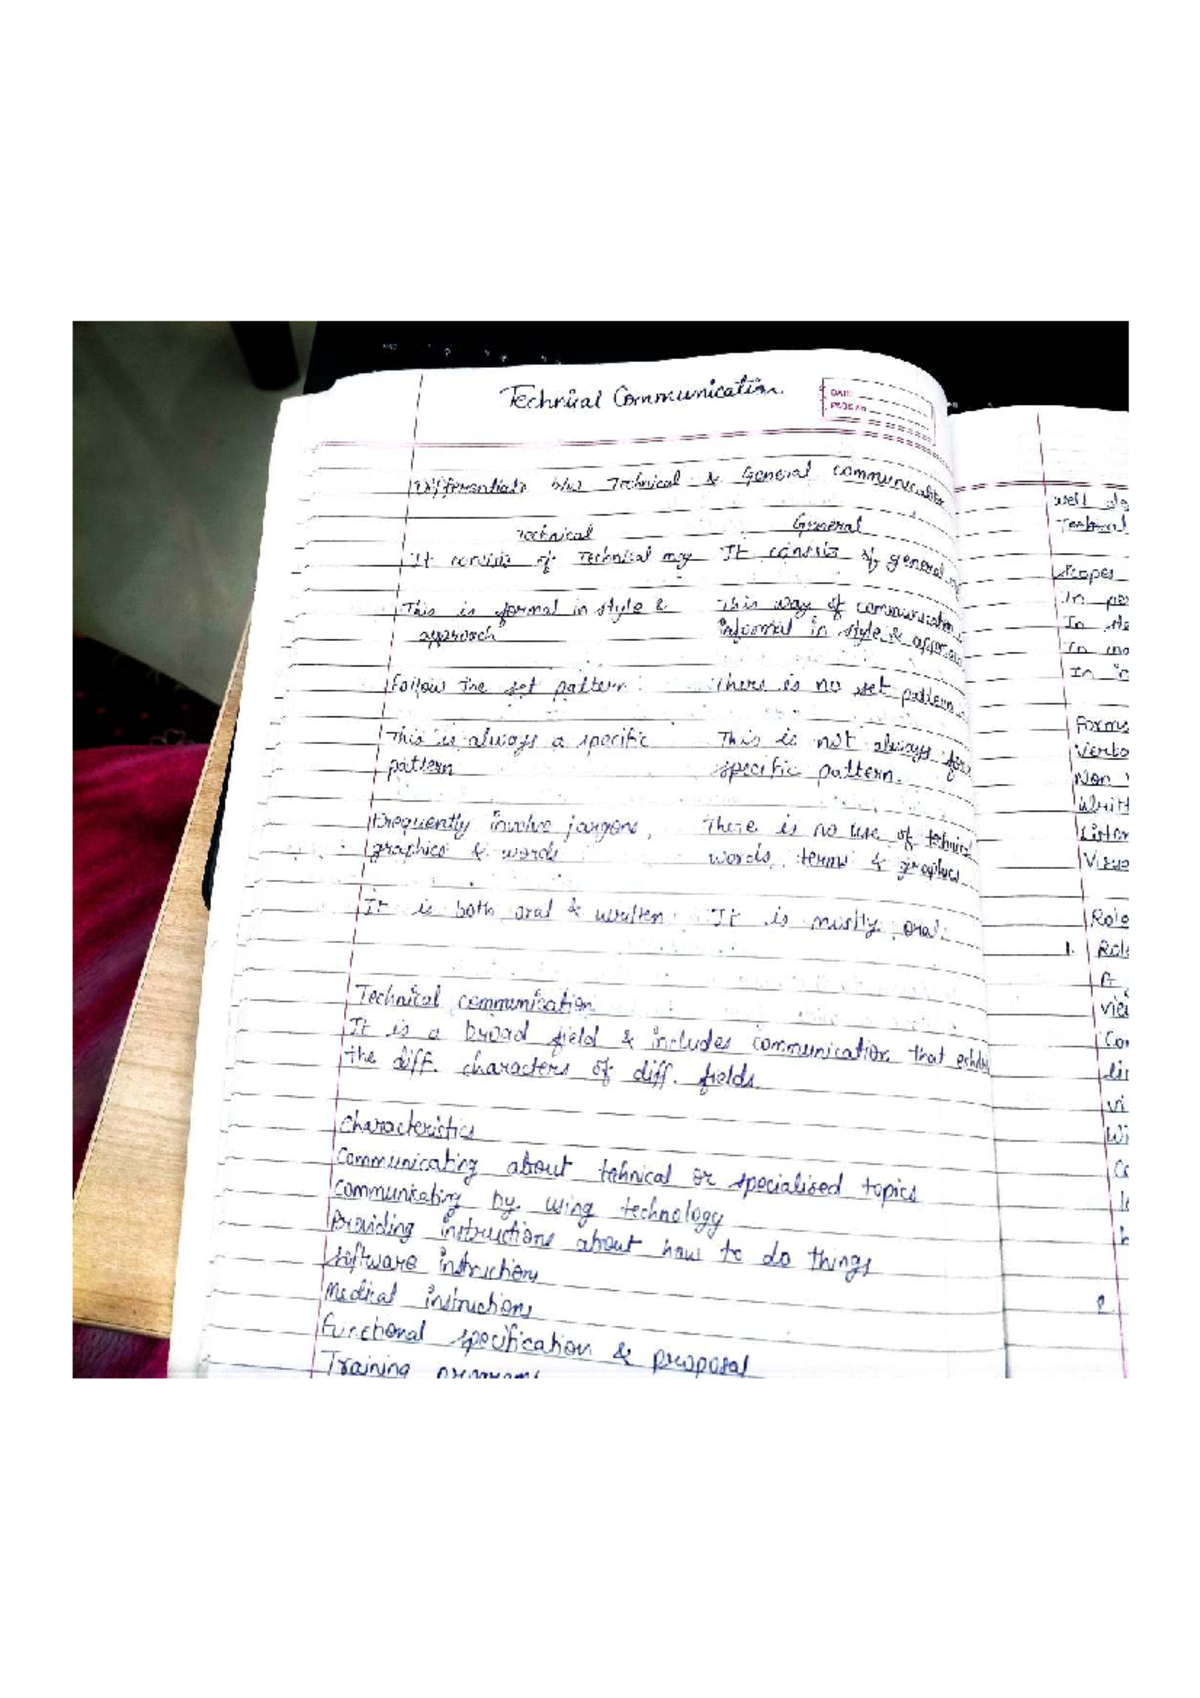 Technical Communication.
DATE
PAGE No.
Differentiate b/w Technical & General communication
Technical General
It consists of Technical msg It consists of general
This is formal in style & This way of communication
approach informal in style &
Follow the set pattern There is no set pattern
This is always a specific This is not always for
pattern specific pattern.
Frequently involve jargons, There is no use of technical
graphics & words words, terms & graphics
It is both oral & written It is mostly oral.
Technical communication
It is a broad field & includes communication that
the diff. characters of diff. fields.
Characteristics
Communicating about tehnical or specialised topics
Communicating by using technology
Providing instructions about how to do things
Software instructions
Medical instructions
Functional specification & proposal
Training programs
well
Scopes
In
In
In
In
Forms
Verba
Non
Writt
Listen
Visua
Role
1. Role
A
vie
Con
vi
Wi
2